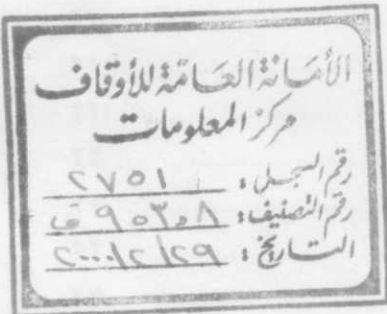 الأمانة العامة للأوقاف
مركز المعلومات
رقم السجل: ٢٧٥١
رقم التصنيف: ٩٥٣٫٠٨ ف
التاريخ: ٢٠٠٠/٢/٢٩